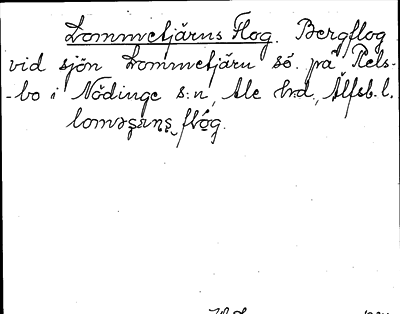 Lommetjärns Flog. Bergflog
vid sjön Lommetjärn sö. på Rels-
-bo i Nödinge s:n, Ale hrd, Älfsb. l.